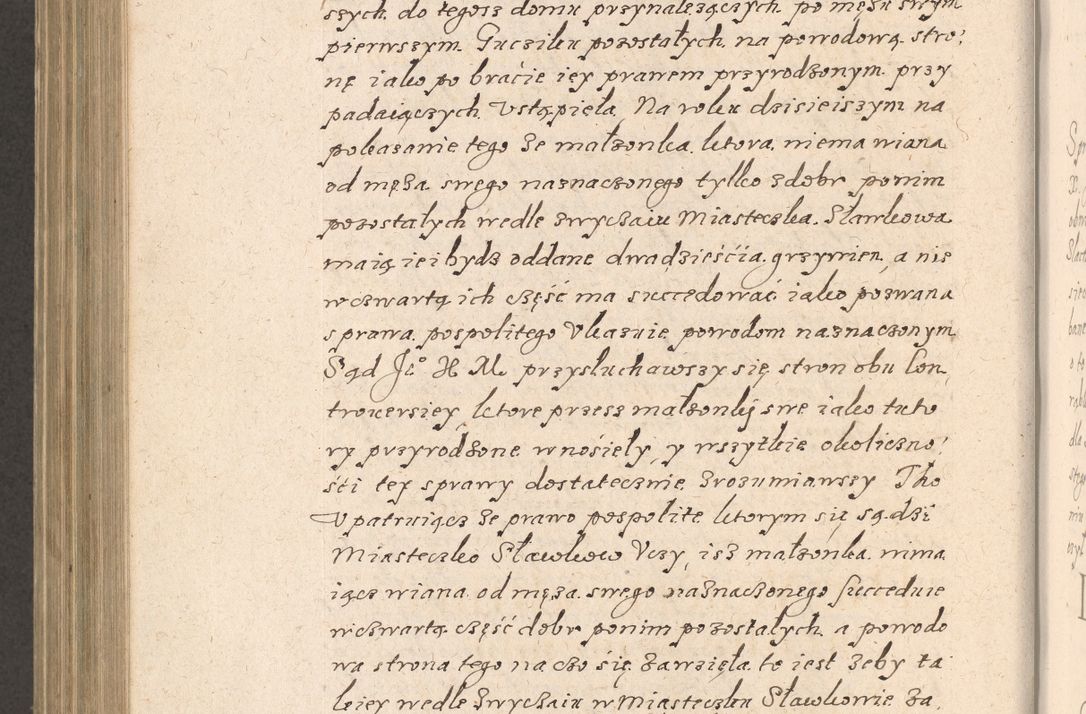 szych do tegosz domu przynależących po mężu swym
pierwszym Gucziku pozostałych na powodową stro,
nę iako po bracie iey prawem przyrodzonym przy
padaiączych Vstąpieła Na roku dzisieiszym na
pokazanie tego że małżonka ktora niema wiana
od męża swego naznaczonego tylko z dobr ponim
pozostałych wedle zwyczaiu Miasteczka Sławkowa
maią iei bydz oddane dwadzieścia grzywien, a nie
wczwartą ich część ma succedować iako pozwana
sprawa pospolitego Vkazuie powodom naznaczonym
Sąd Je° H M przysłuchawszy się stron obu kon,
trowersiey ktore przesz małżonki swe iako tuto
ry przyrodzone wnosiely, y wszytkie okoliczno,
ści tey sprawy dostatecznie zrozumiawszy Tho
Vpatruiącz że prawo pospolite ktorym się sądzi
Miasteczko Sławkow Vczy, isz małżonka nima
iącz wiana od męża swego naznaczonego succeduie
wczwartą część dobr ponim pozostałych a powodo
wa strona tego na czo się zawzięła to iest żeby ta
kiey wedle zwyczaiu w Miasteczku Sławkowie za